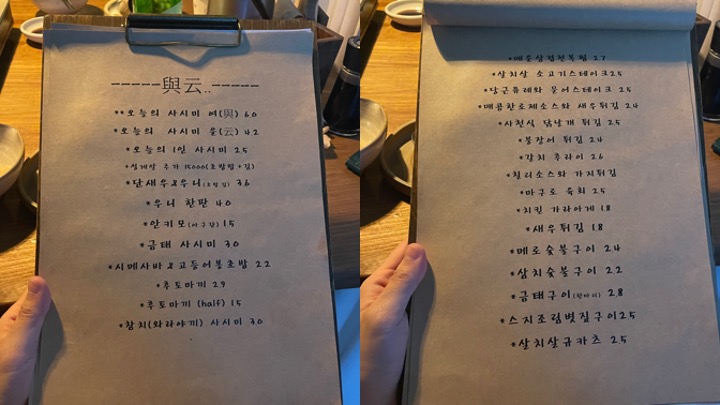 -----與云..-----
**오늘의 사시미 여(與) 60
*오늘의 사시미 운(云) 42
*오늘의 1인 사시미 25
*성게알 추가 15000(초밥밥+김)
*단새우&우니(초밥김) 36
*우니 한판 40
*안키모(아구간) 15
*금태 사시미 30
*시메사바&고등어봉초밥 22
*후토마끼 29
*후토마끼 (half) 15
*참치(와라야끼) 사시미 30
*매운삼겹전복찜 27
*살치살 소고기스테이크 25
*당근퓨레와 문어스테이크 25
*매콤한로제소스와 새우튀김 24
*사천식 닭날개 튀김 25
*붕장어 튀김 24
*갈치 후라이 26
*칠리소스와 가지튀김
*마구로 육회 25
*치킨 가라아게 18
*새우튀김 18
*메로숯불구이 24
*삼치숯불구이 22
*금태구이(한마리) 28
*스지조림볏짚구이 25
*살치살규카츠 25